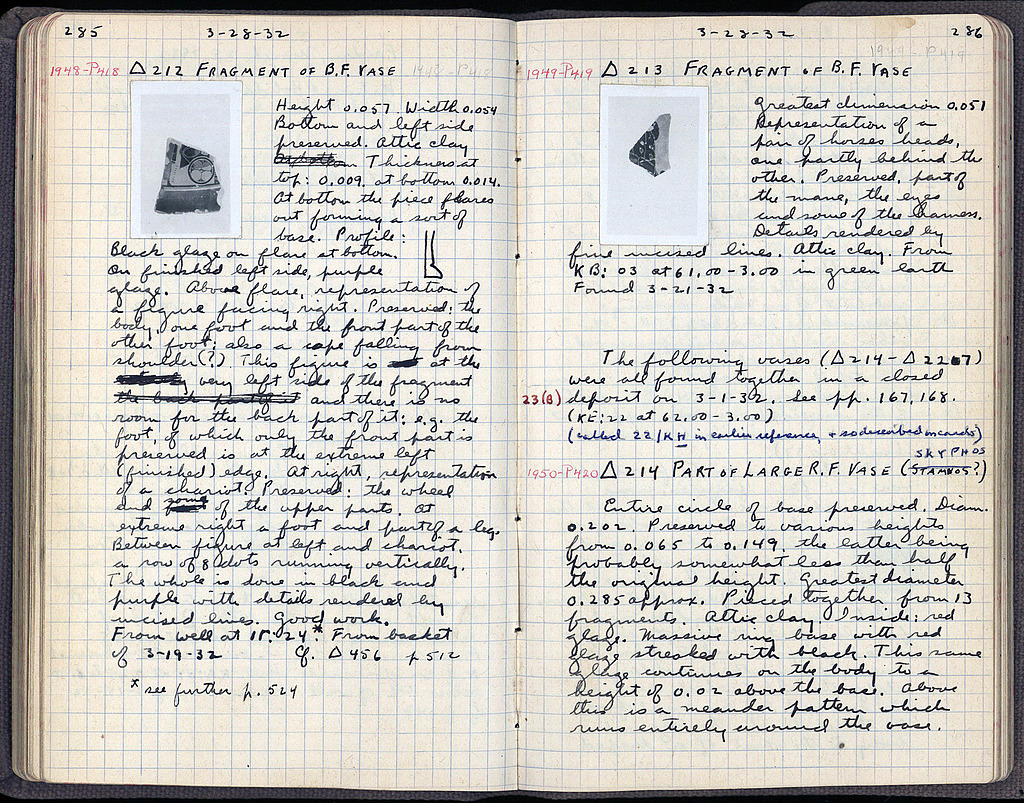 285 3-28-32
1948-P418 Δ 212 FRAGMENT OF B.F. VASE
Height 0.057 Width 0.054
Bottom and left side
preserved. Attic clay
Thickness at
top: 0.009. at bottom 0.014.
At bottom the piece flares
out forming a sort of
base. Profile:
Black glaze on flare at bottom.
On finished left side, purple
glaze. Above flare, representation of
a figure facing right. Preserved: the
body, one foot and the front part of the
other foot; also a cape falling from
shoulder(?) This figure is at the
very left side of the fragment
the back part of it and there is no
room for the back part of it: e.g. the
foot, of which only the front part is
preserved is at the extreme left
(finished) edge. At right, representation
of a chariot. Preserved: the wheel
and some of the upper parts. At
extreme right a foot and part of a leg.
Between figure at left and chariot,
a row of 8 dots running vertically.
The whole is done in black and
purple with details rendered by
incised lines. Good work.
From well at 15.24.* From basket
of 3-19-32 Cf. Δ 456 p 512
* see further p. 524
3-28-32 286
1949-P419
1949-P419 Δ 213 FRAGMENT OF B.F. VASE
Greatest dimension 0.051
Representation of a
pair of horses heads,
one partly behind the
other. Preserved, part of
the mane, the eyes
and some of the harness.
Details rendered by
fine incised lines. Attic clay. From
KB: 03 at 61.00-3.00 in green earth
Found 3-21-32
The following vases (Δ214-Δ227)
were all found together in a closed
23(B) deposit on 3-1-32. See pp. 167, 168.
(KE:22 at 62.00-3.00)
(called 22/KH in earlier reference, + so described on cards)
SKYPHOS
1950-P420 Δ 214 PART OF LARGE R.F. VASE (STAMNOS?)
Entire circle of base preserved. Diam.
0.202. Preserved to various heights
from 0.065 to 0.149, the latter being
probably somewhat less than half
the original height. Greatest diameter
0.285 approx. Pieced together from 13
fragments. Attic clay. Inside: red
glaze. Massive ring base with red
glaze streaked with black. This same
glaze continues on the body to a
height of 0.02 above the base. Above
this is a meander pattern which
runs entirely around the vase.